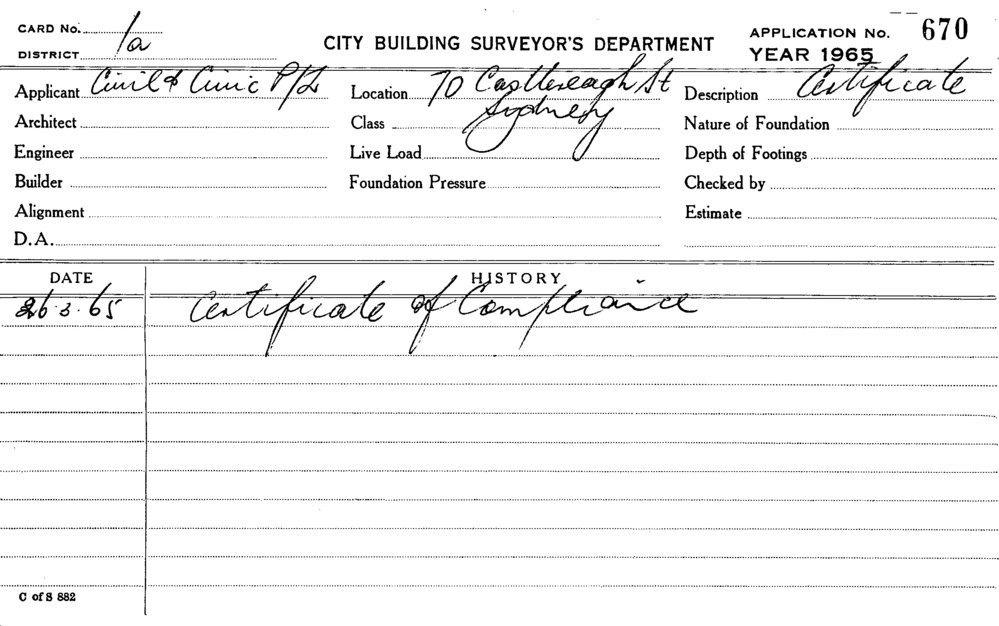 CARD No. 1a
DISTRICT
CITY BUILDING SURVEYOR'S DEPARTMENT
APPLICATION No. 670
YEAR 1965
Applicant Civil & Civic P/L Location 70 Castlereagh St Sydney Description Certificate
Architect Class Nature of Foundation
Engineer Live Load Depth of Footings
Builder Foundation Pressure Checked by
Alignment Estimate
D.A.
DATE HISTORY
26.3.65 Certificate of Compliance
C of S 882